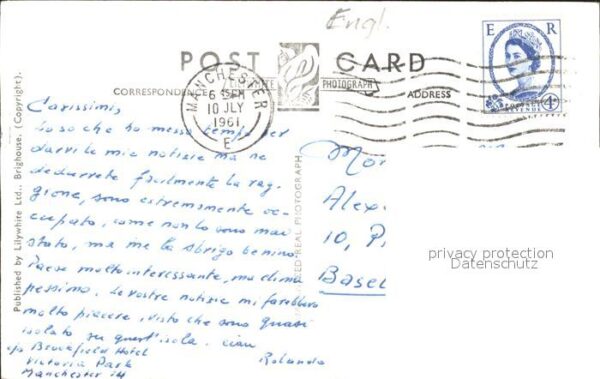 Engl.
POST CARD
CORRESPONDENCE
ADDRESS
PHOTOGRAPH
MANCHESTER
6 15 PM
10 JLY
1961
E
E R
POSTAGE
REVENUE
4D
Published by Lilywhite Ltd., Brighouse. (Copyright).
REAL PHOTOGRAPH
Carissimi,
Lo so che ho messo tempo per
darvi le mie notizie ma ne
dedurrete facilmente la rag-
gione, sono estremamente oc-
cupato, come non lo sono mai
stato, ma me la sbrigo benino.
Paese molto interessante, ma clima
pessimo. Le vostre notizie mi farebbero
molto piacere, visto che sono quasi
isolato su quest'isola. Ciau
Rolando
c/o Brookfield Hotel
Victoria Park
Manchester 14
Alex
10, P
Basel
privacy protection
Datenschutz